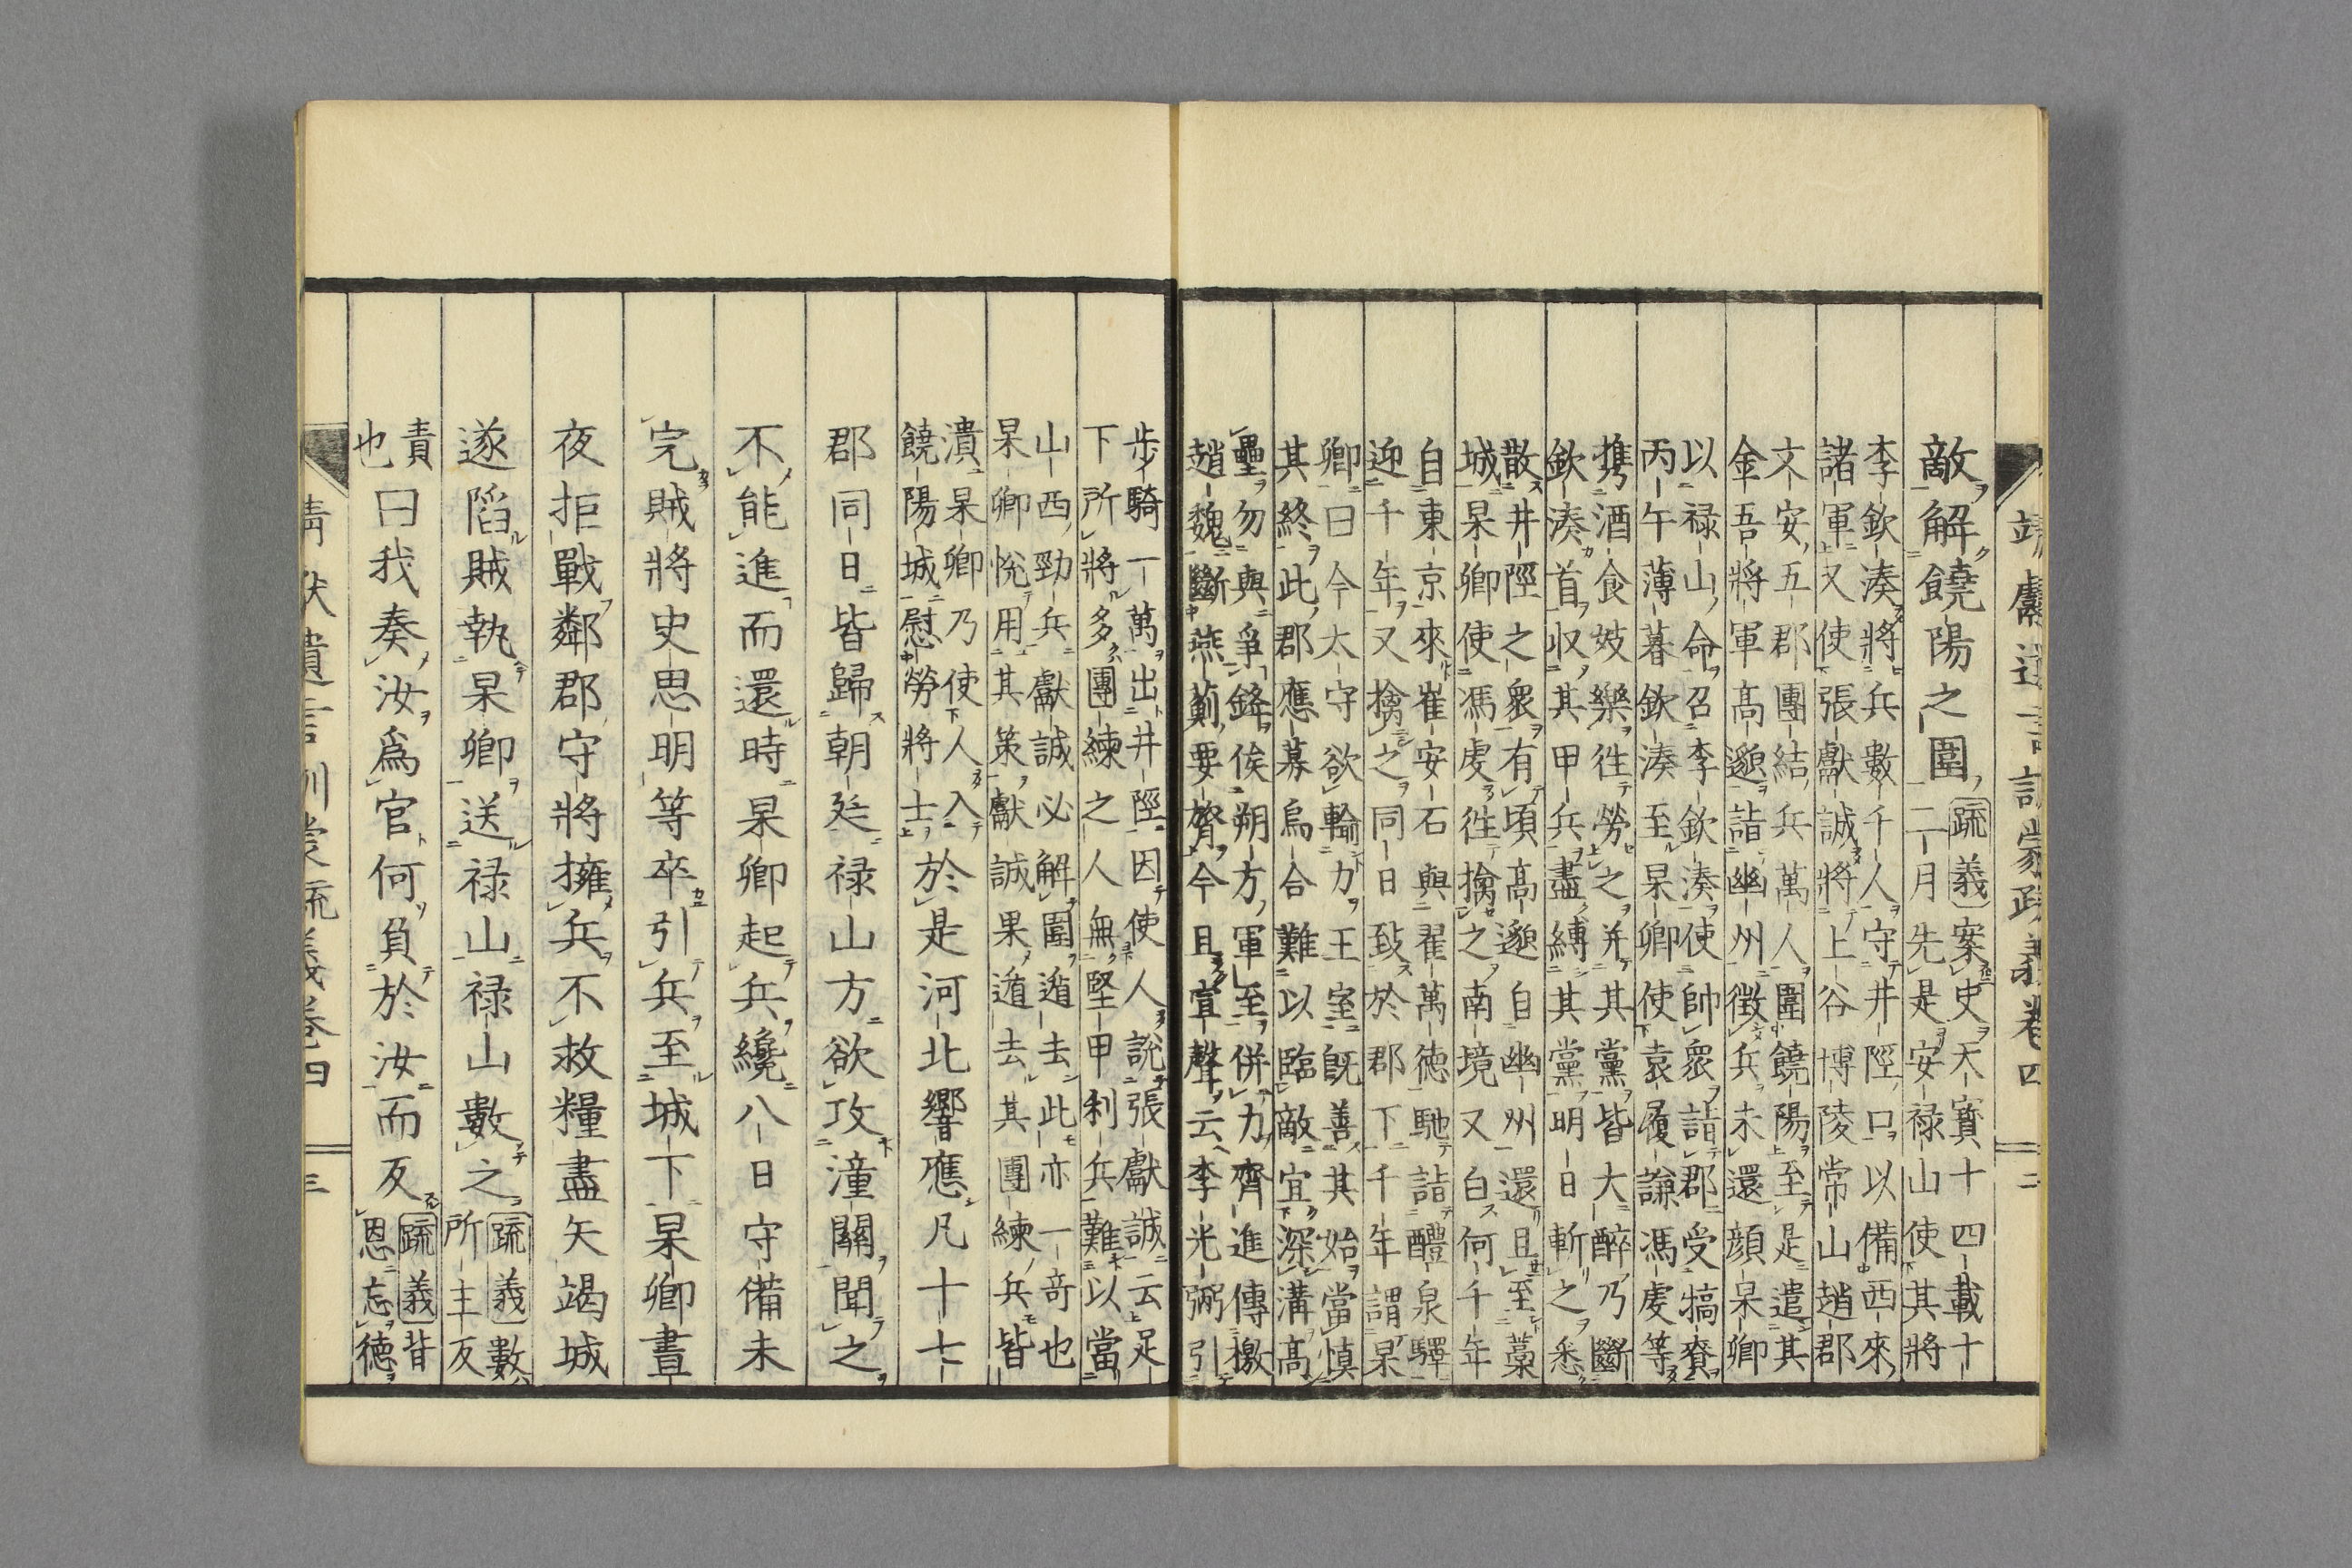 敵解饒陽之圍疏義案史天寶十四載十
二月先是安禄山使其將
李欽湊將兵數千人守井陘口以備西來
諸軍又使張獻誠將上谷博陵常山趙郡
文安五郡團結兵萬人圍饒陽至是遣其
金吾將軍高邈詣幽州徴兵未還顔杲卿
以禄山命召李欽湊使帥衆詣郡受犒賚
丙午薄暮欽湊至杲卿使袁履謙馮虔等
携酒食妓樂往勞之并其黨皆大醉乃斷
欽湊首収其甲兵盡縛其黨明日斬之悉
散井陘之衆有頃高邈自幽州還且至藁
城杲卿使馮虔往擒之南境又白何千年
自東京來崔安石與翟萬徳馳詣醴泉驛
迎千年又擒之同日致於郡下千年謂杲
卿曰今太守欲輸力王室既善其始當慎
其終此郡應募烏合難以臨敵宜深溝高
壘勿與爭鋒俟朔方軍至併力齊進傳檄
趙魏斷燕薊要膂今且宣聲云李光弼引
步騎一萬出井陘因使人說張獻誠云足
下所將多團練之人無堅甲利兵難以當
山西勁兵獻誠必解圍遁去此亦一奇也
杲卿悅用其策獻誠果遁去其團練兵皆
潰杲卿乃使人入
饒陽城慰勞將士於是河北響應凡十七
郡同日皆歸朝廷禄山方欲攻潼關聞之
不能進而還時杲卿起兵纔八日守備未
完賊將史思明等卒引兵至城下杲卿晝
夜拒戰鄰郡守將擁兵不救糧盡矢竭城
遂陷賊執杲卿送禄山禄山數之疏義數
所主反
責
也曰我奏汝爲官何負於汝而反疏義背
恩忘徳